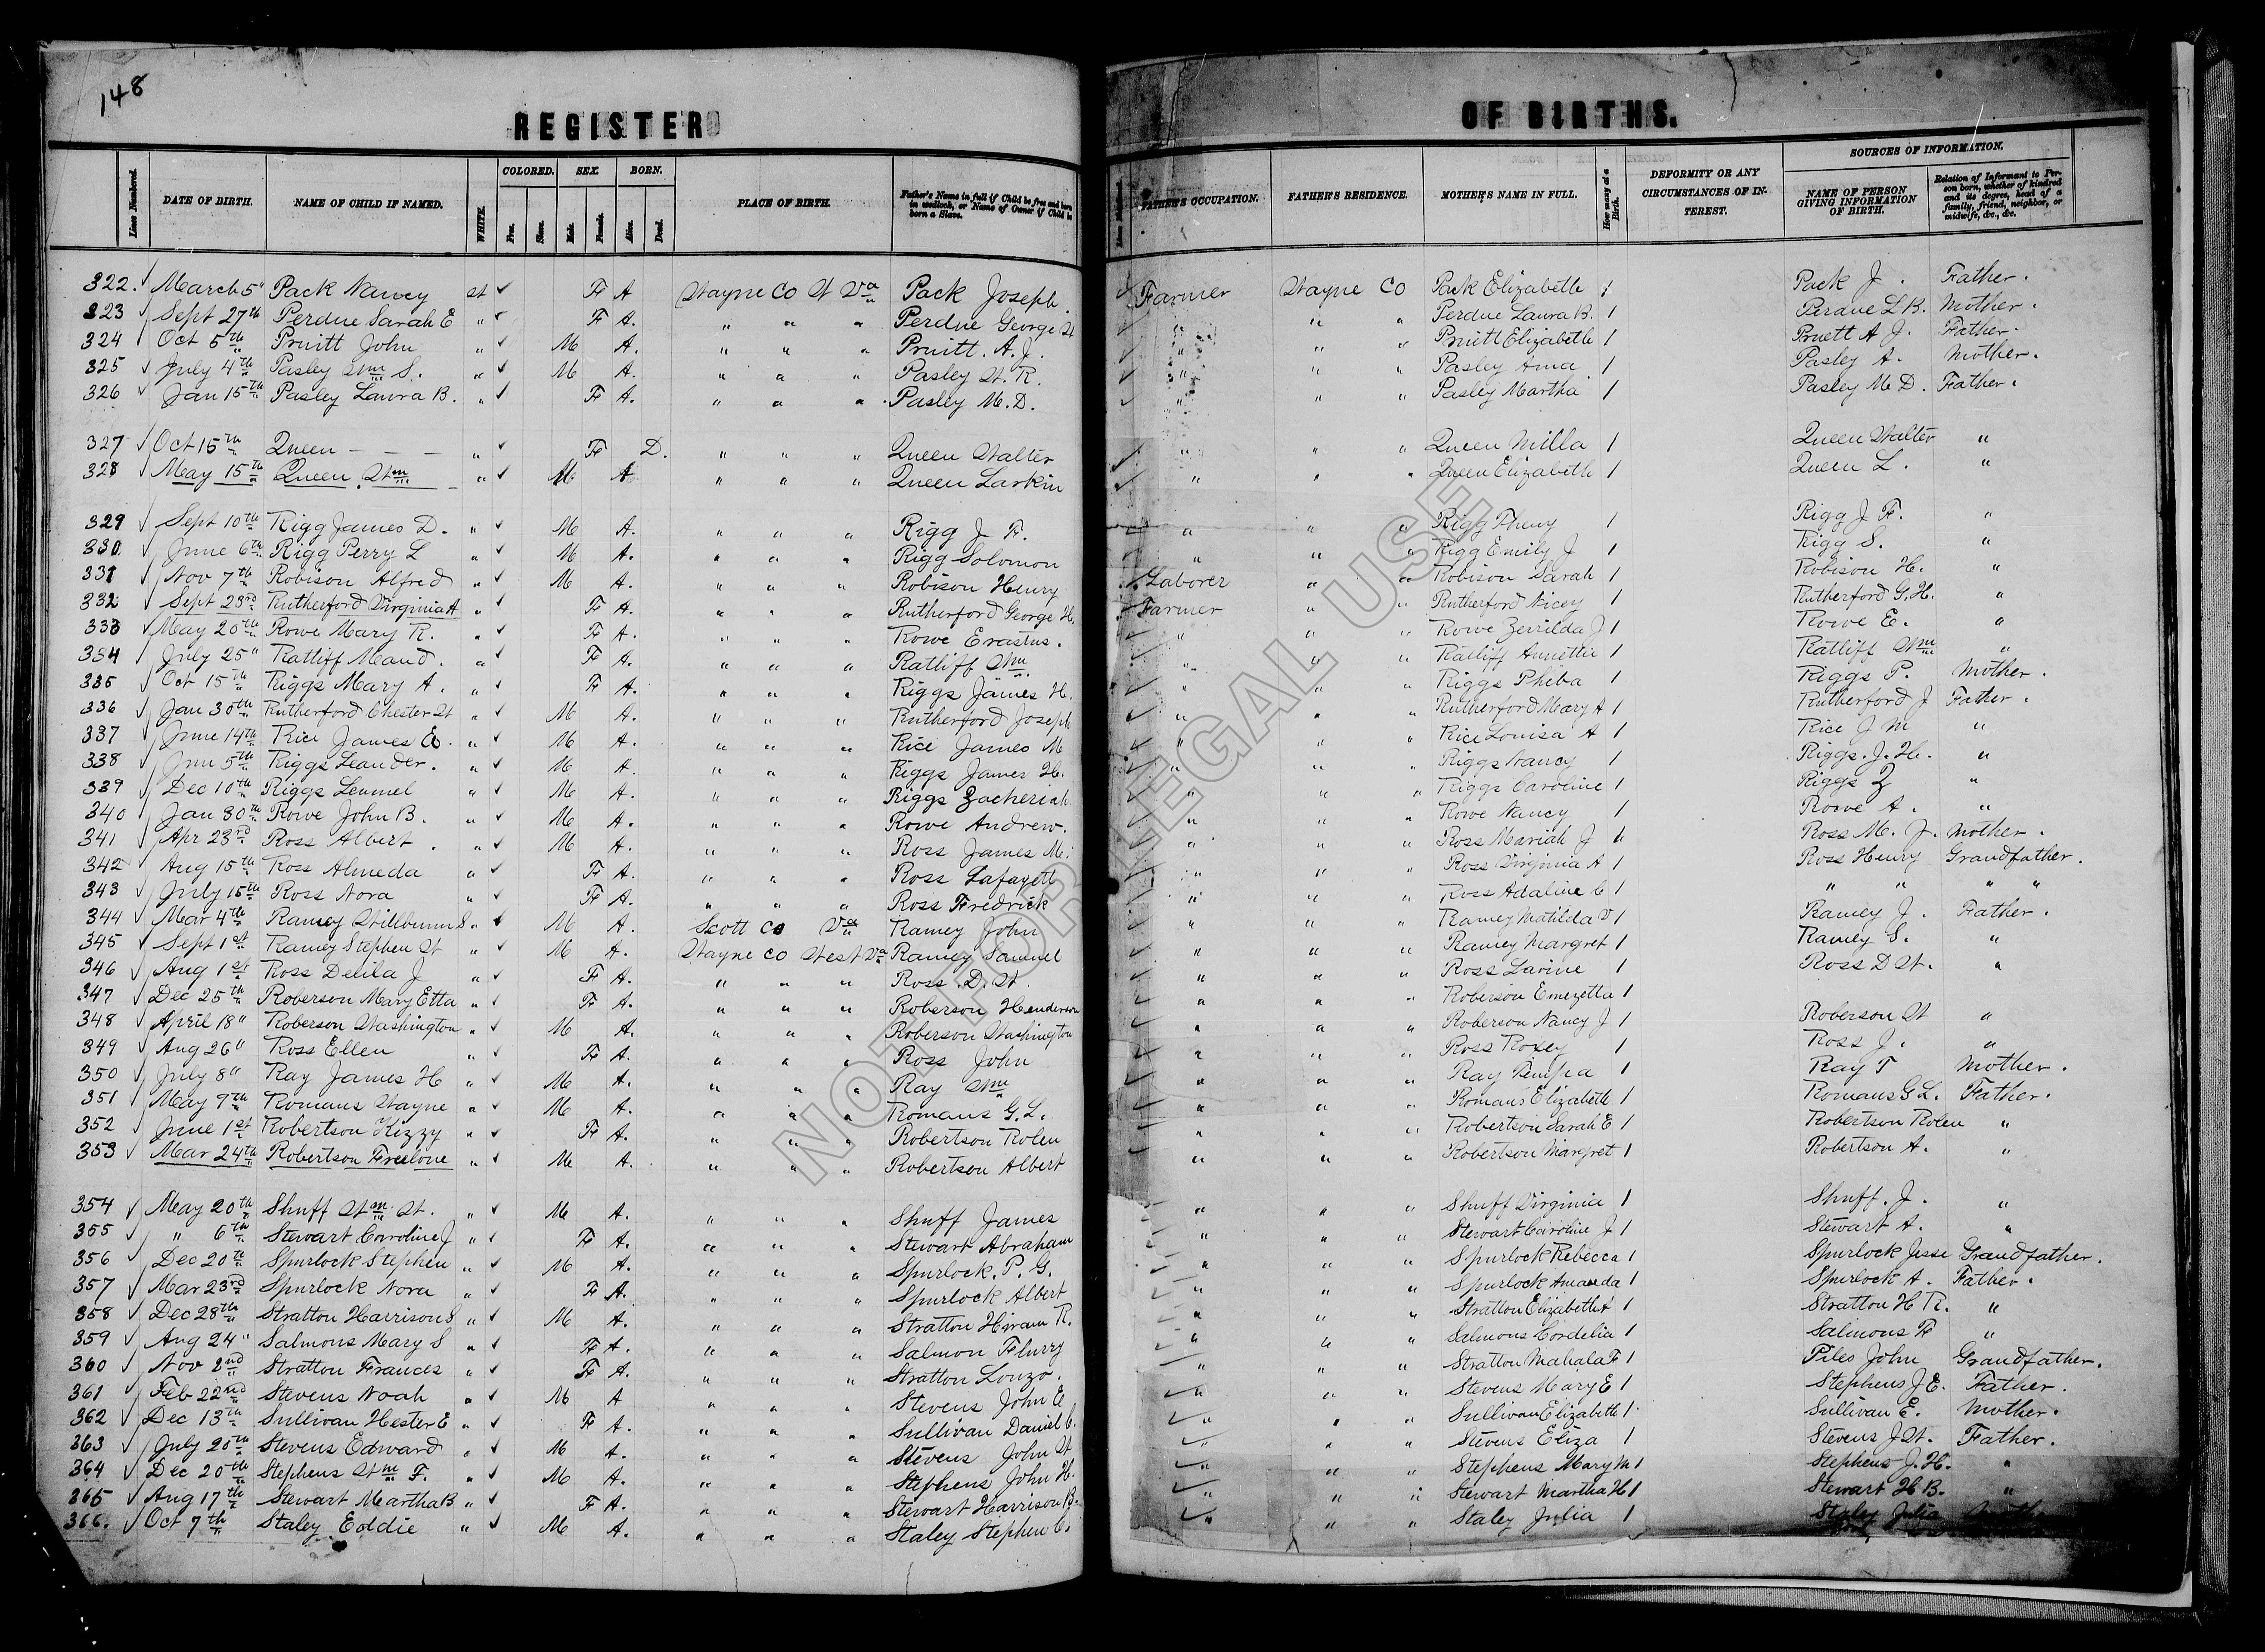 148
REGISTER OF BIRTHS.
Lines Numbered. DATE OF BIRTH. NAME OF CHILD IF NAMED. WHITE. COLORED. Free. Slave. SEX. Male. Female. BORN. Alive. Dead. PLACE OF BIRTH. Father's Name in full if Child be free and born in wedlock, or Name of Owner if Child be born a Slave. FATHER'S OCCUPATION. FATHER'S RESIDENCE. MOTHER'S NAME IN FULL. How many at a Birth. DEFORMITY OR ANY CIRCUMSTANCES OF INTEREST. SOURCES OF INFORMATION. NAME OF PERSON GIVING INFORMATION OF BIRTH. Relation of Informant to Person born, whether of kindred and its degree, head of a family, friend, neighbor, or midwife, &c., &c.
322. ✓ March 5" Pack Nancy W ✓ F A Wayne Co W Va Pack Joseph. ✓ Farmer Wayne Co Pack Elizabeth 1 Pack J. Father.
323 ✓ Sept 27th Perdue Sarah E " ✓ F A. " " " Perdue George W ✓ " " " Perdue Laura B. 1 Perdue L B. Mother.
324 ✓ Oct 5th Pruitt John " ✓ M A. " " " Pruitt. A. J. ✓ " " " Pruitt Elizabeth 1 Pruett A J. Father.
325 ✓ July 4th Pasley Wm S. " ✓ M A. " " " Pasley W. R. ✓ " " " Pasley Ama 1 Pasley A. Mother.
326 ✓ Jan 15th Pasley Laura B. " ✓ F A. " " " Pasley M. D. ✓ " " " Pasley Martha 1 Pasley M D. Father.
327 ✓ Oct 15th Queen - - - " ✓ F D. " " " Queen Walter " " " Queen Milla 1 Queen Walter "
328 ✓ May 15th Queen Wm " ✓ M A. " " " Queen Larkin ✓ " " " Queen Elizabeth 1 Queen L. "
329 ✓ Sept 10th Rigg James D. " ✓ M A. " " " Rigg J. F. ✓ " " " Rigg Pheny 1 Rigg J F. "
330 ✓ June 6th Rigg Perry L " ✓ M A. " " " Rigg Solomon ✓ " " " Rigg Emily J 1 Rigg S. "
331 ✓ Nov 7th Robison Alfred " ✓ M A. " " " Robison Henry ✓ Laborer " " Robison Sarah 1 Robison H. "
332 ✓ Sept 23rd Rutherford Virginia A " ✓ F A. " " " Rutherford George H. ✓ Farmer " " Rutherford Nicey 1 Rutherford G. H. "
333 ✓ May 20th Rowe Mary R. " ✓ F A. " " " Rowe Erastus. ✓ " " " Rowe Zerrilda J 1 Rowe E. "
334 ✓ July 25" Ratliff Maud. " ✓ F A. " " " Ratliff Wm. ✓ " " " Ratliff Annettie 1 Ratliff Wm "
335 ✓ Oct 15th Riggs Mary A. " ✓ F A. " " " Riggs James H. ✓ " " " Riggs Pheba 1 Riggs P. Mother.
336 ✓ Jan 30th Rutherford Chester W " ✓ M A. " " " Rutherford Joseph ✓ " " " Rutherford Mary A 1 Rutherford J Father.
337 ✓ June 14th Rice James E. " ✓ M A. " " " Rice James M ✓ " " " Rice Louisa A 1 Rice J M "
338 ✓ Jun 5th Riggs Leander. " ✓ M A. " " " Riggs James H. ✓ " " " Riggs Nancy 1 Riggs. J. H. "
339 ✓ Dec 10th Riggs Lemuel " ✓ M A. " " " Riggs Zacheriah ✓ " " " Riggs Caroline 1 Riggs Z "
340 ✓ Jan 30th Rowe John B. " ✓ M A. " " " Rowe Andrew. ✓ " " " Rowe Nancy 1 Rowe A. "
341 ✓ Apr 23rd Ross Albert. " ✓ M A. " " " Ross James M. ✓ " " " Ross Mariah J " Ross M. J. Mother.
342 ✓ Aug 15th Ross Almeda " ✓ F A. " " " Ross Lafayett ✓ " " " Ross Virginia A 1 Ross Henry Grandfather.
343 ✓ July 15th Ross Nora " ✓ F A. " " " Ross Fredrick ✓ " " " Ross Adaline C 1 " " " "
344 ✓ Mar 4th Ramey S " ✓ M A. Scott Co Va Ramey John ✓ " " " Ramey Matilda V 1 Ramey J. Father.
345 ✓ Sept 1st Ramey Stephen W " ✓ M A. Wayne Co West Va Ramey Samuel ✓ " " " Ramey Margret 1 Ramey S. "
346 ✓ Aug 1st Ross Delila J " ✓ F A. " " " Ross. D. W. ✓ " " " Ross Lavine 1 Ross D W. "
347 ✓ Dec 25th Roberson Mary Etta " ✓ F A. " " " Roberson Henderson ✓ " " " Roberson Emezetta 1
348 ✓ April 18" Roberson Washington " ✓ M A. " " " Roberson Washington ✓ " " " Roberson Nancy J 1 Roberson W "
349 ✓ Aug 26" Ross Ellen " ✓ F A. " " " Ross John ✓ " " " Ross Roxey 1 Ross J. "
350 ✓ July 8" Ray James H " ✓ M A. " " " Ray Wm ✓ " " " Ray 1 Ray T Mother.
351 ✓ May 9th Romans Wayne " ✓ M A. " " " Romans G. L. ✓ " " " Romans Elizabeth 1 Romans G L. Father.
352 ✓ June 1st Robertson Kizzy " ✓ F A. " " " Robertson Rolen ✓ " " " Robertson Sarah E 1 Robertson Rolen "
353 ✓ Mar 24th Robertson Freelove " ✓ M A. " " " Robertson Albert " " " Robertson Margret 1 Robertson A. "
354 ✓ May 20th Shuff Wm. W. " ✓ M A. " " " Shuff James ✓ " " " Shuff Virginia 1 Shuff. J. "
355 ✓ " 6th Stewart Caroline J " ✓ F A. " " " Stewart Abraham ✓ " " " Stewart Caroline J 1 Stewart A. "
356 ✓ Dec 20th Spurlock Stephen " ✓ M A. " " " Spurlock. P. G. ✓ " " " Spurlock Rebecca 1 Spurlock Jesse Grandfather.
357 ✓ Mar 23rd Spurlock Nora " ✓ F A. " " " Spurlock Albert ✓ " " " Spurlock Amanda 1 Spurlock A. Father.
358 ✓ Dec 28th Stratton Harrison S " ✓ M A. " " " Stratton Hiram R. ✓ " " " Stratton Elizabeth A 1 Stratton H R. "
359 ✓ Aug 24" Salmons Mary S " ✓ F A. " " " Salmon Flurry ✓ " " " Salmons Cordelia 1 Salmons F "
360 ✓ Nov 2nd Stratton Frances " ✓ F A. " " " Stratton Lonzo. ✓ " " " Stratton Mahala F 1 Piles John Grandfather.
361 ✓ Feb 22nd Stevens Noah " ✓ M A " " " Stevens John E ✓ " " " Stevens Mary E 1 Stephens J E. Father.
362 ✓ Dec 13th Sullivan Hester E " ✓ F A. " " " Sullivan Daniel C. ✓ " " " Sullivan Elizabeth 1 Sullivan E. Mother.
363 ✓ July 20th Stevens Edward " ✓ M A. " " " Stevens John W ✓ " " " Stevens Eliza 1 Stevens J W. Father.
364 ✓ Dec 20th Stephens Wm F. " ✓ M A. " " " Stephens John H. ✓ " " " Stephens Mary M 1 Stephens J. H. "
365 ✓ Aug 17th Stewart Martha B " ✓ F A. " " " Stewart Harrison B. ✓ " " " Stewart Martha H 1 Stewart H B. "
366. ✓ Oct 7th Staley Eddie " ✓ M A. " " " Staley Stephen C. ✓ " " " Staley Julia 1 Staley Julia Mother
NOT FOR LEGAL USE